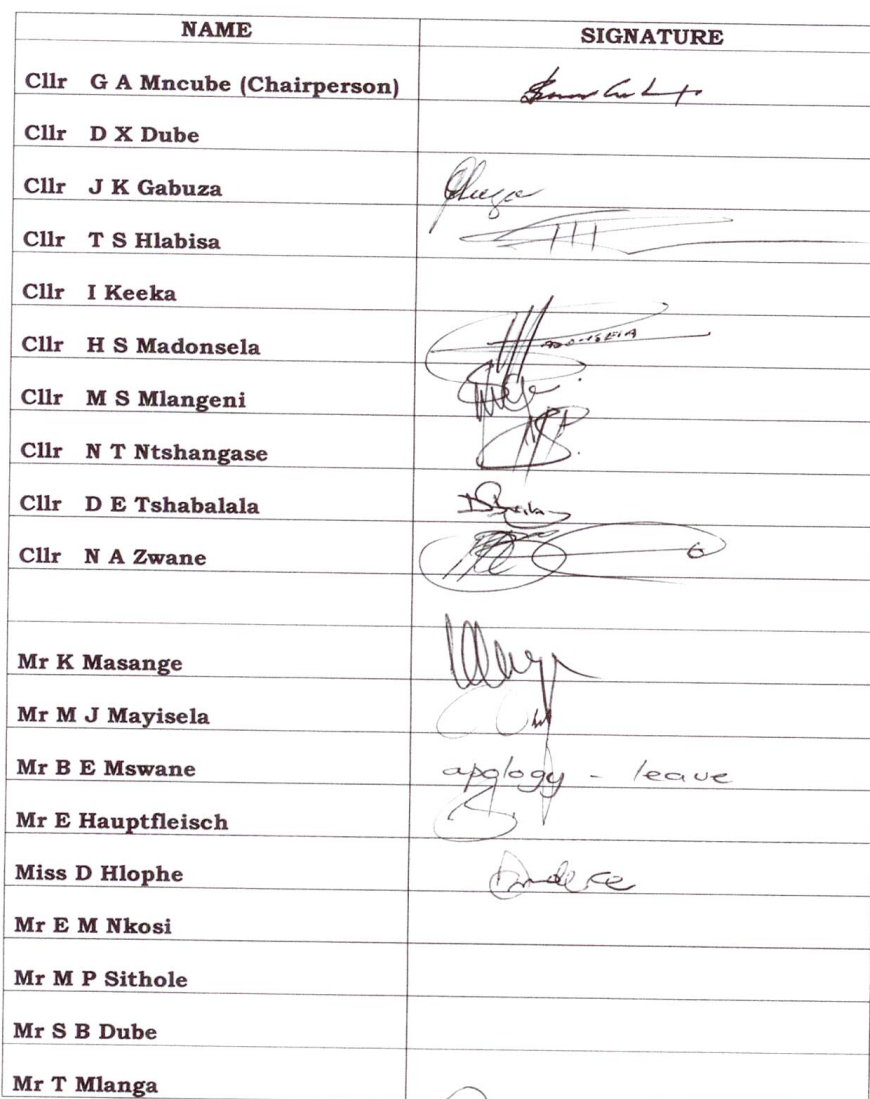 NAME SIGNATURE
Cllr G A Mncube (Chairperson)
Cllr D X Dube
Cllr J K Gabuza
Cllr T S Hlabisa
Cllr I Keeka
Cllr H S Madonsela
Cllr M S Mlangeni
Cllr N T Ntshangase
Cllr D E Tshabalala
Cllr N A Zwane
Mr K Masange
Mr M J Mayisela
Mr B E Mswane apology - leave
Mr E Hauptfleisch
Miss D Hlophe
Mr E M Nkosi
Mr M P Sithole
Mr S B Dube
Mr T Mlanga